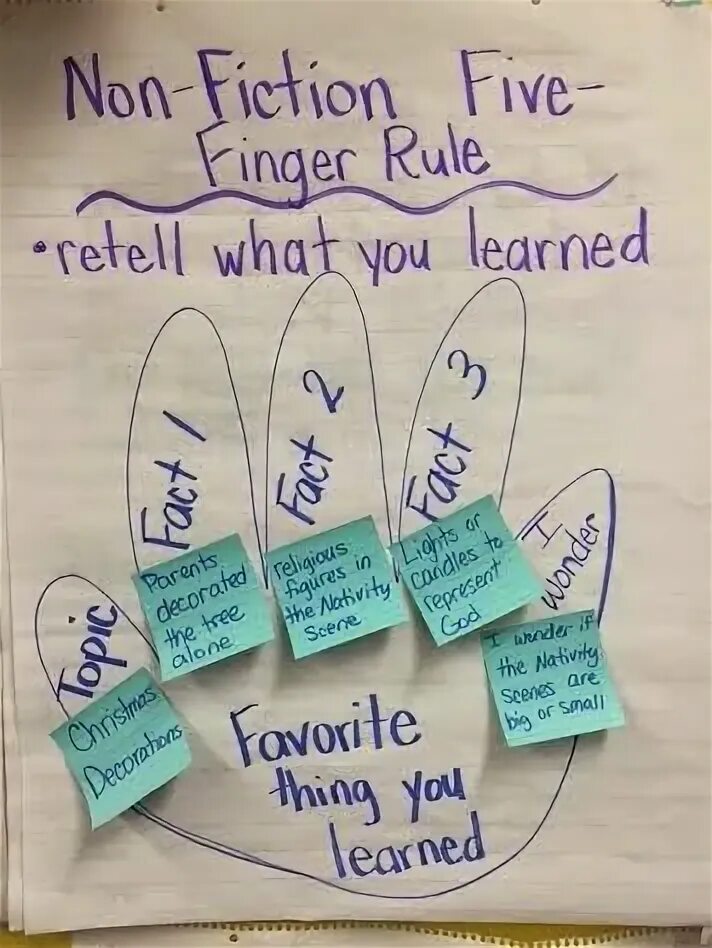 Non-Fiction Five-
Finger Rule
•retell what you learned
Fact 1
Fact 2
Fact 3
I
wonder
Topic
Parents
decorated
the tree
alone.
religious
figures in
the Nativity
Scene
Lights or
candles to
represent
God
I wonder if
the Nativity
Scenes are
big or small
Christmas
Decorations
Favorite
thing you
learned